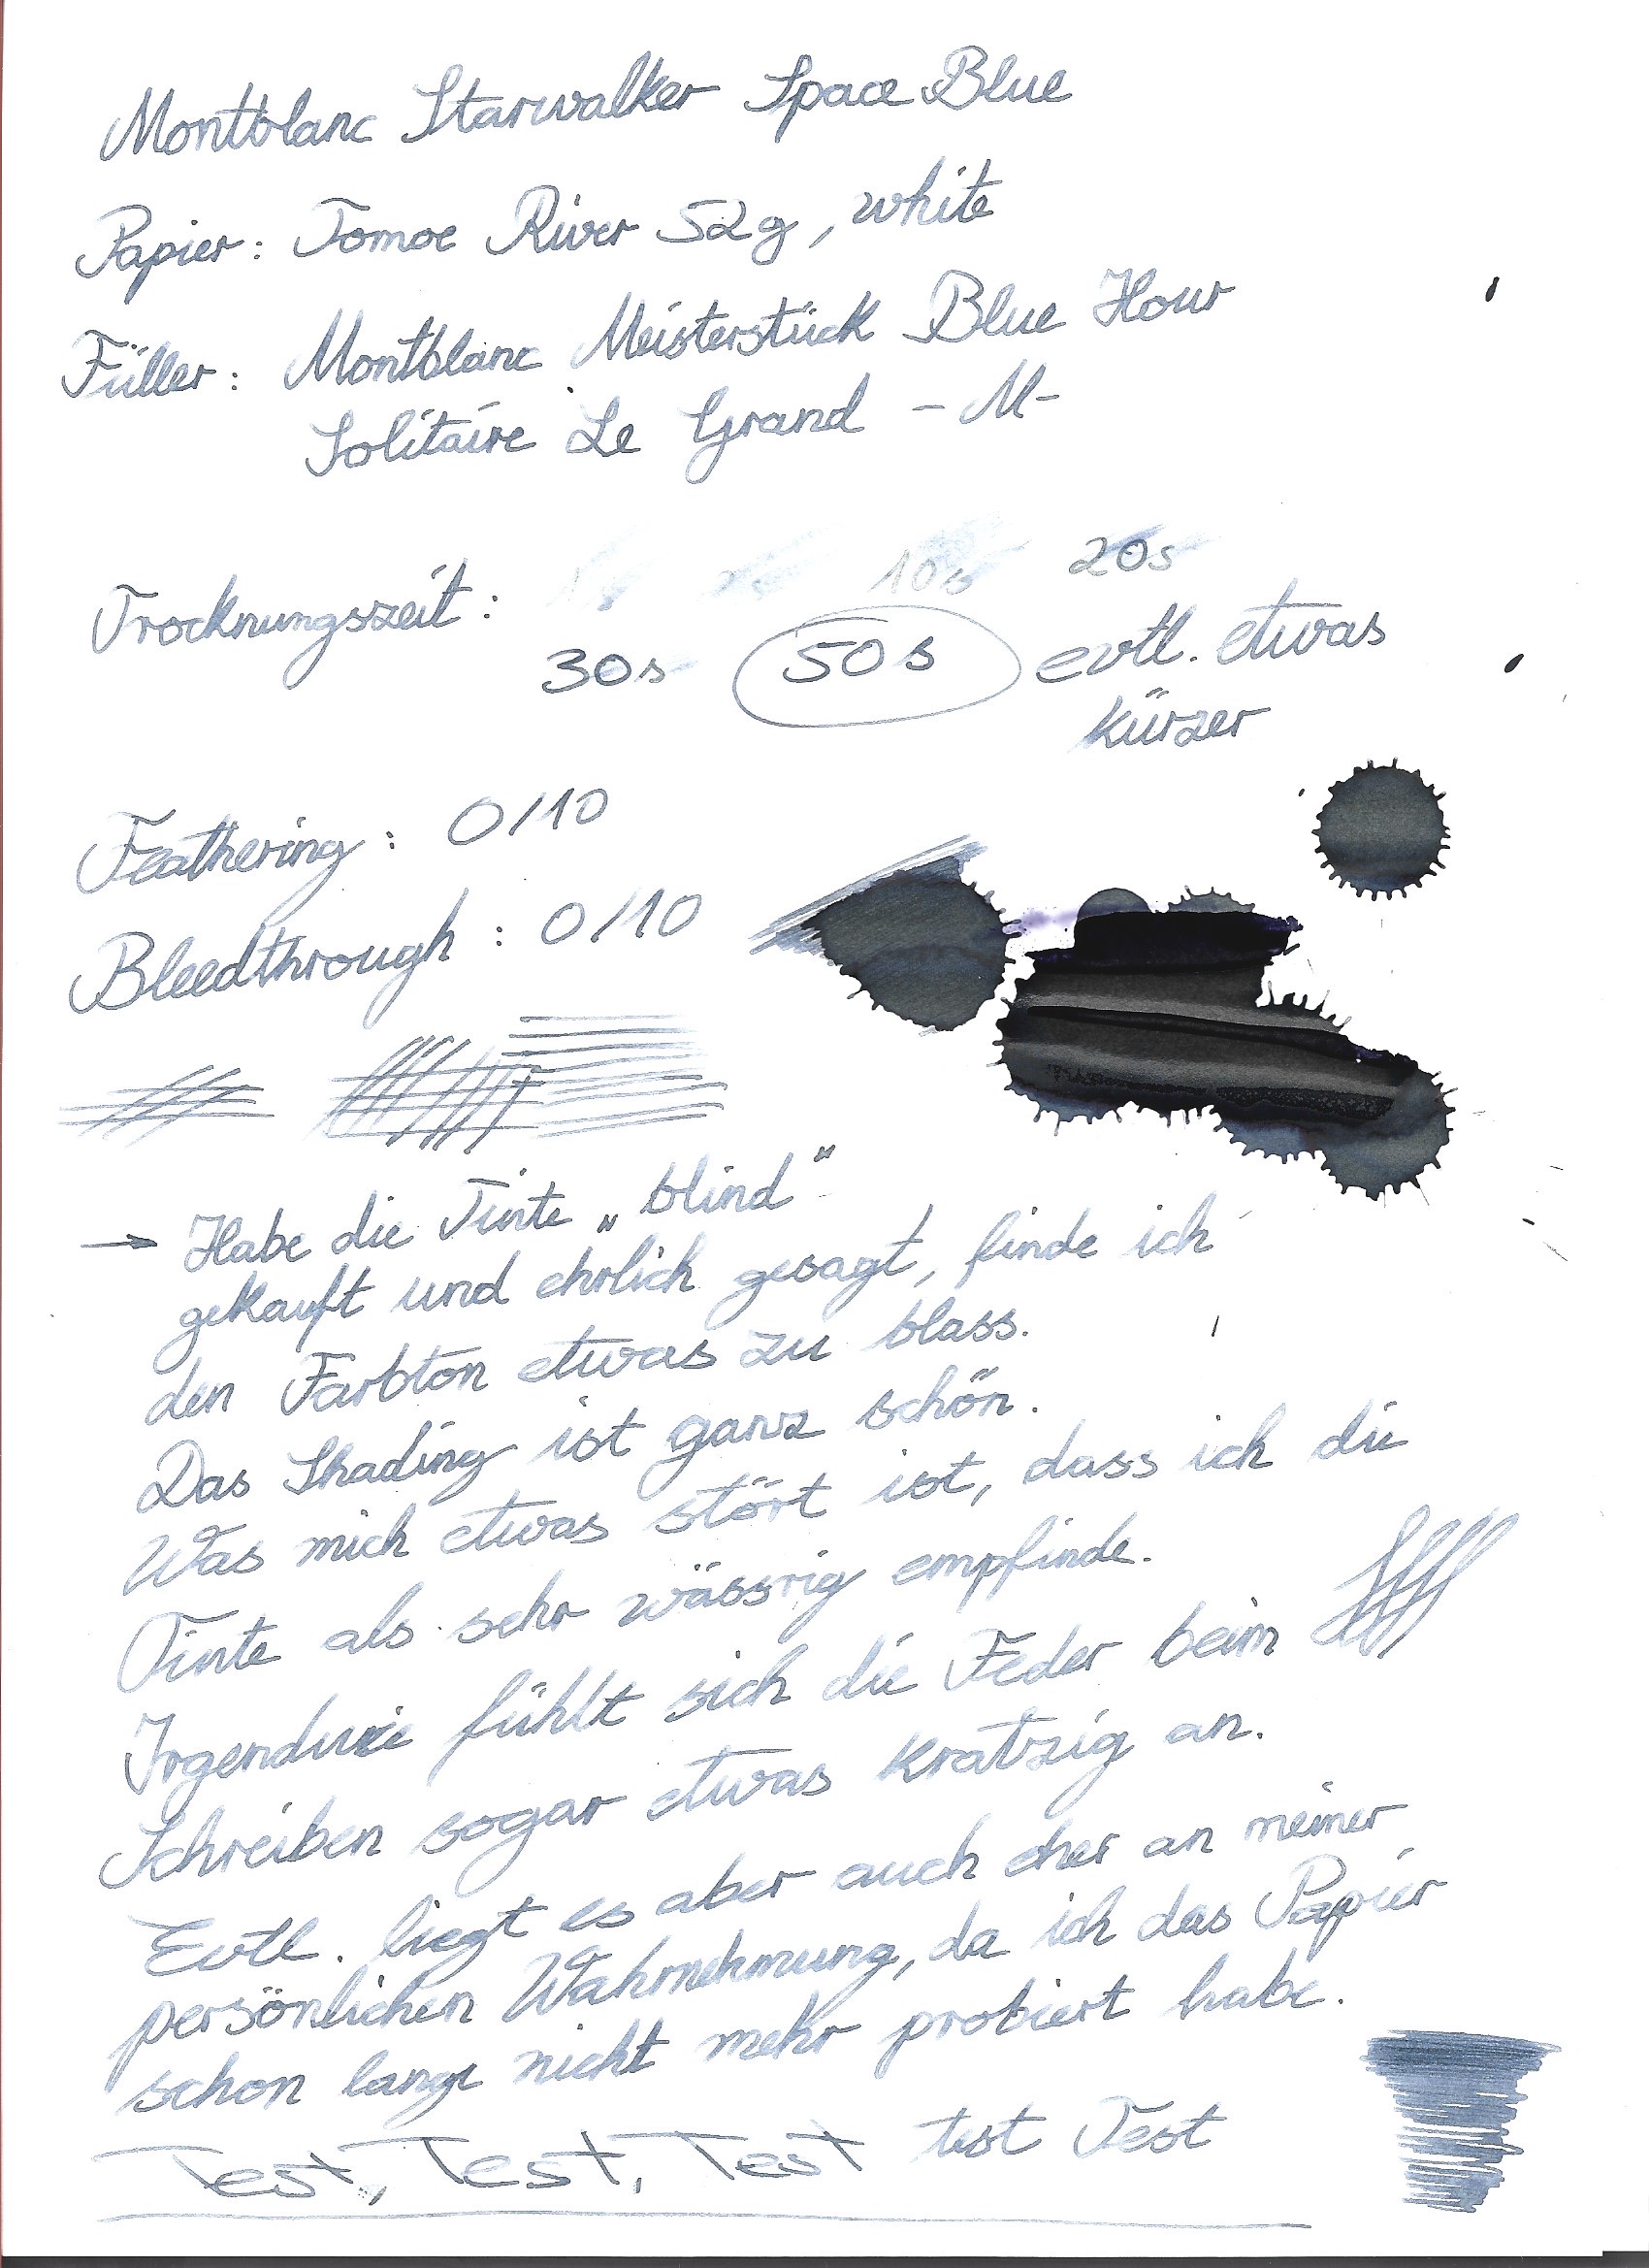 Montblanc Starwalker Space Blue
Papier: Tomoe River 52g, white
Füller: Montblanc Meisterstück Blue Hour
Solitaire Le Grand - M-
Trocknungszeit: 10s 20s
30s 50s evtl. etwas
kürzer
Feathering: 0/10
Bleedthrough: 0/10
→ Habe die Tinte „blind“
gekauft und ehrlich gesagt, finde ich
den Farbton etwas zu blass.
Das Shading ist ganz schön.
Was mich etwas stört ist, dass ich die
Tinte als sehr wässrig empfinde.
Irgendwie fühlt sich die Feder beim
Schreiben sogar etwas kratzig an.
Evtl. liegt es aber auch eher an meiner
persönlichen Wahrnehmung, da ich das Papier
schon lange nicht mehr probiert habe.
Test, Test, Test test Test